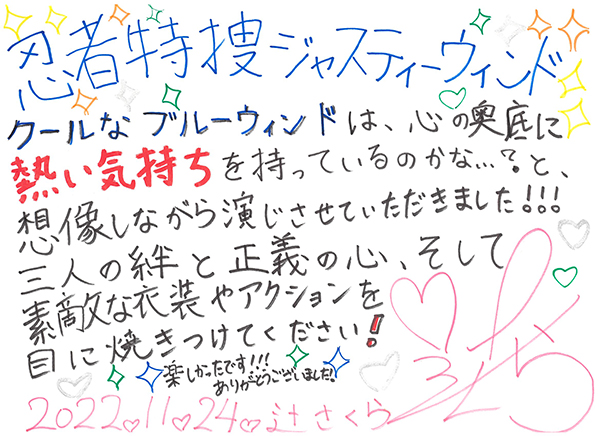 忍者特捜ジャスティーウィンド
クールなブルーウィンドは、心の奥底に
熱い気持ちを持っているのかな…?と、
想像しながら演じさせていただきました!!!
三人の絆と正義の心、そして
素敵な衣装やアクションを
目に焼きつけてください!
楽しかったです!!!
ありがとうございました!
2022♡11♡24♡辻さくら